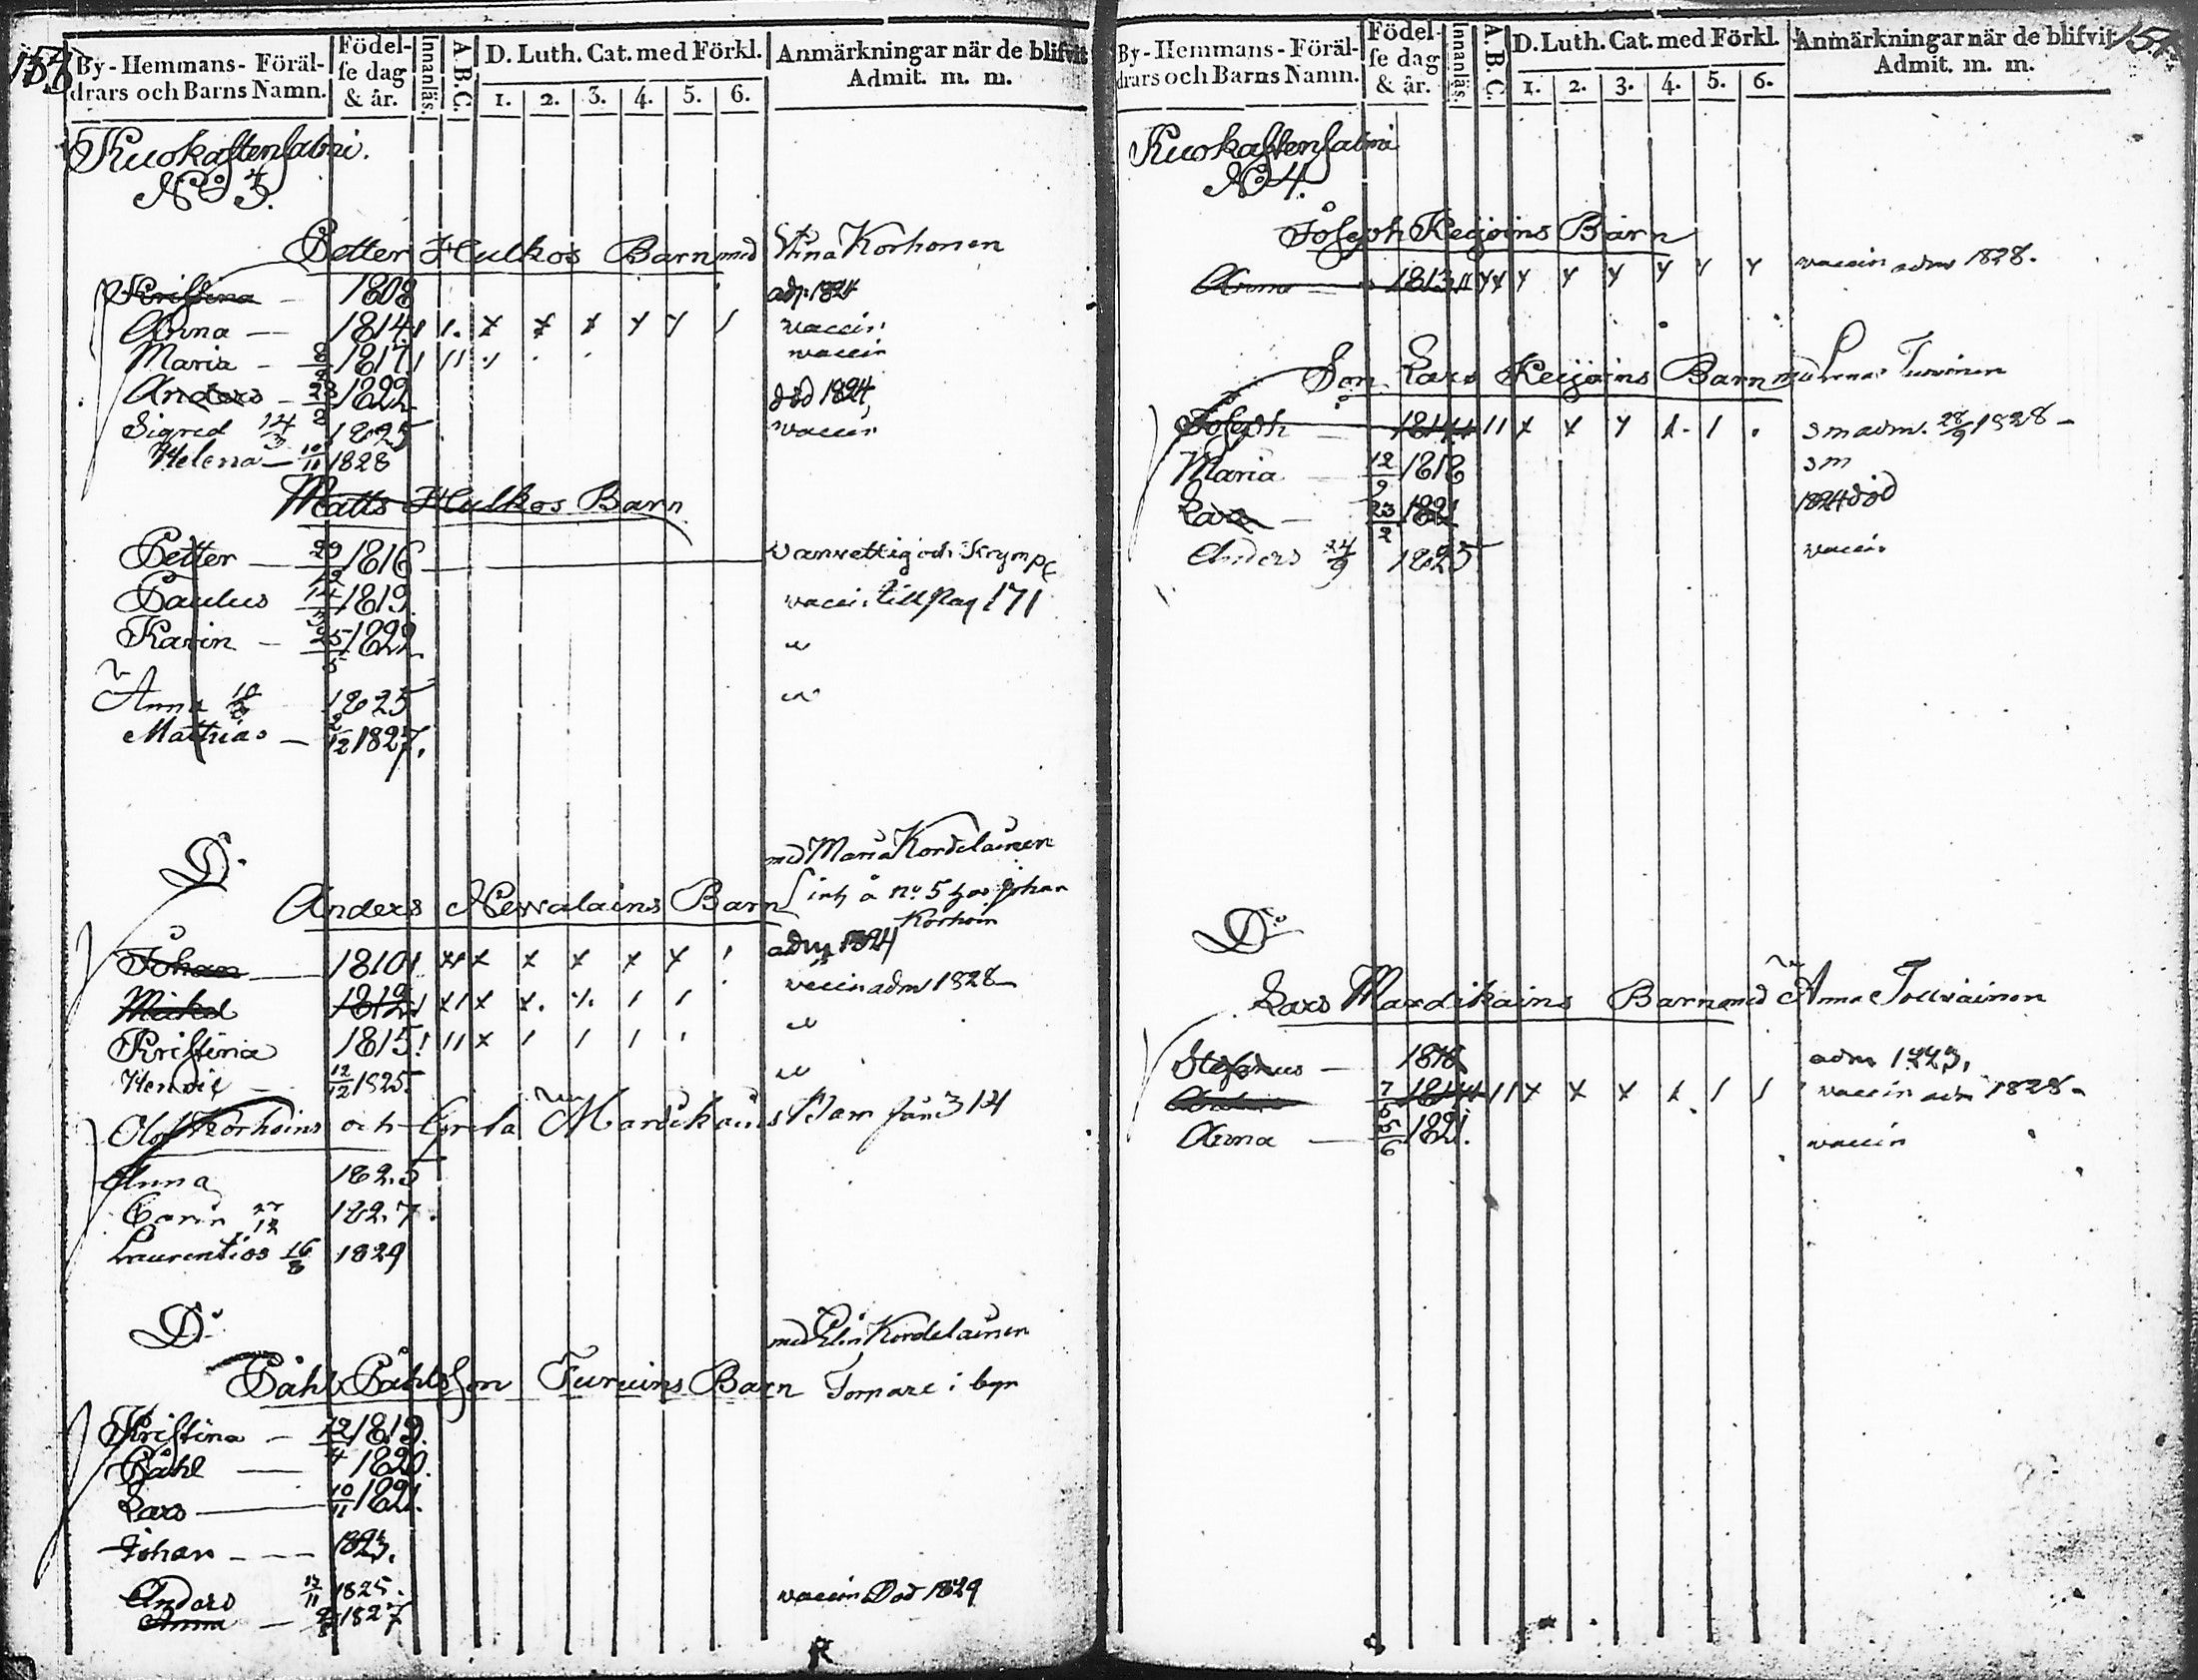 153
By-Hemmans-Föräldrars och Barns Namn. Födelse dag & år. Innanläs. A.B.C. D. Luth. Cat. med Förkl. 1. 2. 3. 4. 5. 6. Anmärkningar när de blifvit Admit. m. m.
Ruokastensalmi.
No 3.
Petter Hulkos Barn med Stina Korhonen
Kristina — 1808 adm 1824
Anna — 1814 1 1. x x x y y 1 vaccin
Maria — 1817 vaccin
Anders — 23/2 1822 död 1824
Sigred 14/3 1825 vaccin
Helena — 10/11 1828
Matts Hulkos Barn
Petter — 29/12 1816 — vanvettig och Krymp
Paulus 14/3 1819 vaccin till pag 171
Karin — 25/5 1822 "
Anna 1825 "
Matthias — 2/12 1827.
Do med Maria Kordelainen
Anders Nevalains Barn inh å No 5 hos Johan Korhoin
Johan — 1810 1 xx x x x x y 1 adm 1824
Mickel 1812 1 x1 x x. x. 1 1 vaccin adm 1828
Kristina 1815 1 11 x 1 1 1 1 "
Henric — 12/12 1825 "
Olof Korhoins och Greta Mardikains Barn från 314
Anna 1825
Carin 27/12 1827.
Laurentios 16/8 1829
Do med Elin Kordelainen
Påhl Påhlsson Turuins Barn Torpare i byn
Kristina — 12 1819.
Påhl — 1820.
Lars — 10/11 1821.
Johan — 1823.
Anders 1825. vaccin Död 1829
Anna — 1827
154.
By-Hemmans-Föräldrars och Barns Namn. Födelse dag & år. Innanläs. A.B.C. D. Luth. Cat. med Förkl. 1. 2. 3. 4. 5. 6. Anmärkningar när de blifvit Admit. m. m.
Ruokastensalmi
No 4.
Joseph Reijoins Barn
Anna — 1813 11 yy y y y y y y vaccin adm 1828.
Son Lars Reijoins Barn med Lena Turunen
Joseph — 1814 11 x x y 1. 1 . sm adm. 28/9 1828 —
Maria 12/9 1818 sm
Lars — 23/2 1821 1824 död
Anders 24/9 1825 vaccin
Do
Lars Mardikains Barn med Anna Toivainen
Stefanus — 1810 adm 1823.
7/6 1814 11 x x x 1. 1 1 vaccin adm 1828
Anna — 5/6 1821. vaccin